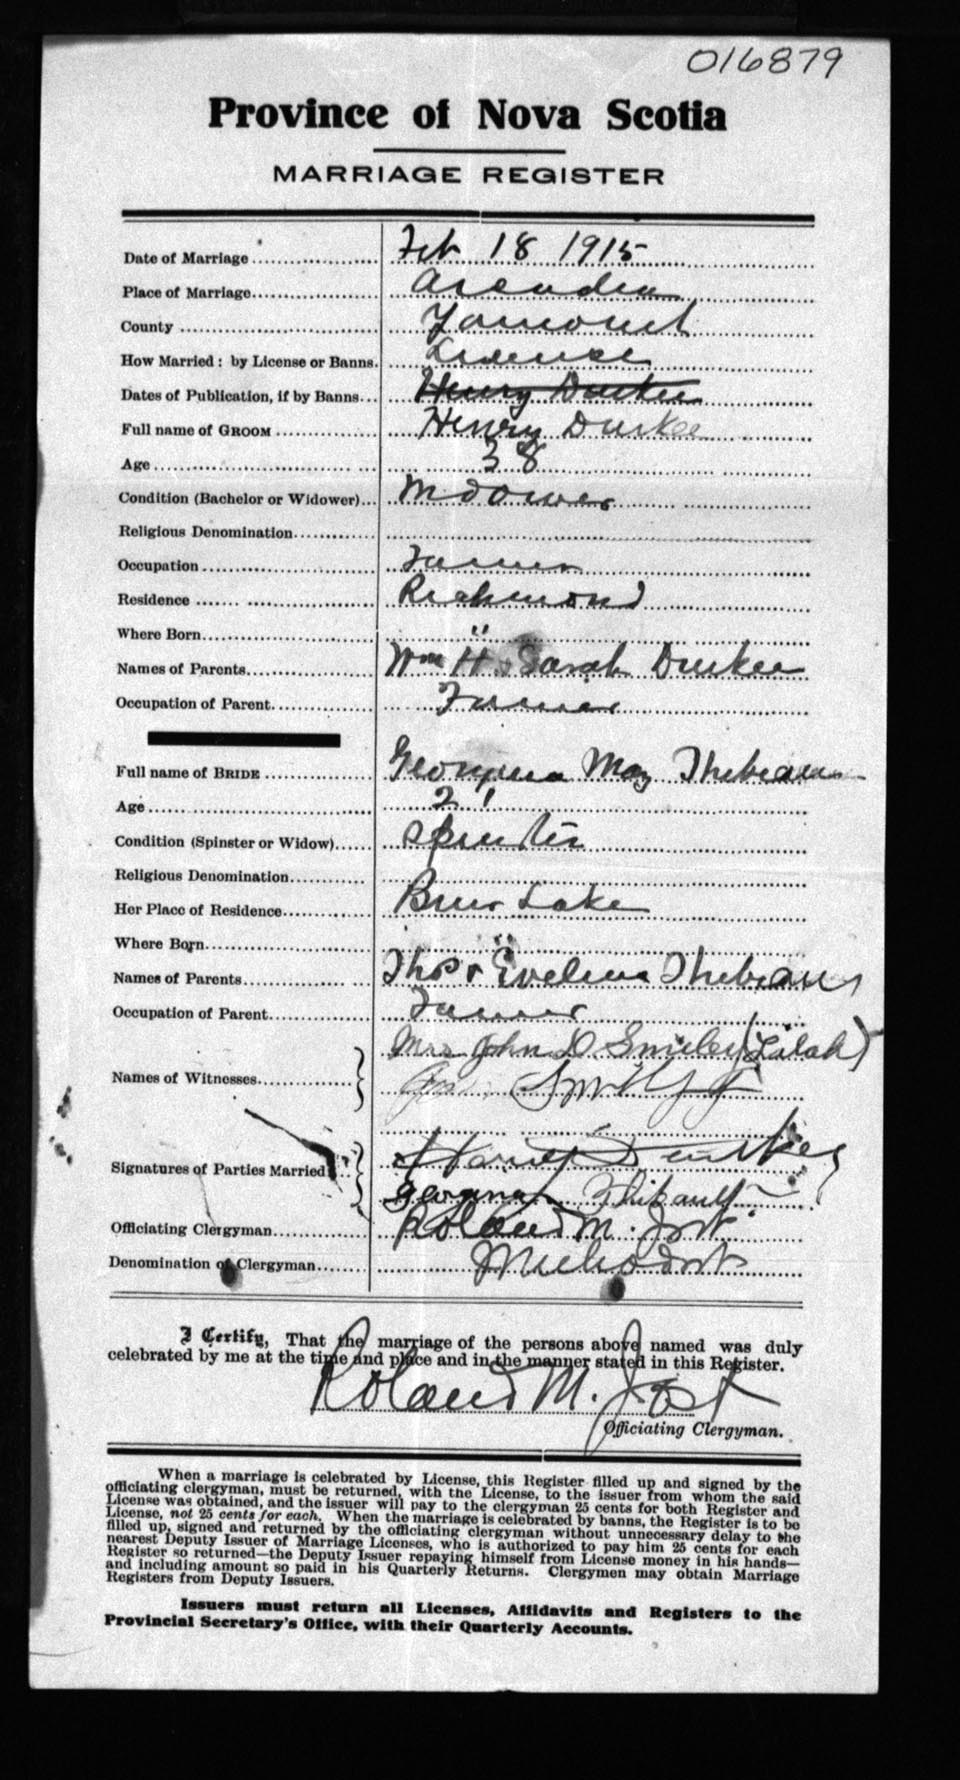 016879
Province of Nova Scotia
MARRIAGE REGISTER
Date of Marriage Feb 18 1915
Place of Marriage Arcadia
County Yarmouth
How Married: by License or Banns. License
Dates of Publication, if by Banns Henry Durkee
Full name of GROOM Henry Durkee
Age 38
Condition (Bachelor or Widower) Widower
Religious Denomination
Occupation Farmer
Residence Richmond
Where Born "
Names of Parents Wm H & Sarah Durkee
Occupation of Parent Farmer
Full name of BRIDE Georgina May Thebeau
Age 21
Condition (Spinster or Widow) Spinster
Religious Denomination
Her Place of Residence Lake
Where Born "
Names of Parents Thos & Evelena Thebeau
Occupation of Parent Farmer
Mrs John D Smiley (Lilah)
Names of Witnesses
Signatures of Parties Married Henry Durkee
Georgina Thibault
Officiating Clergyman Roland M. Jost
Denomination of Clergyman Methodist
I Certify, That the marriage of the persons above named was duly
celebrated by me at the time and place and in the manner stated in this Register.
Roland M. Jost
Officiating Clergyman.
When a marriage is celebrated by License, this Register filled up and signed by the
officiating clergyman, must be returned, with the License, to the issuer from whom the said
License was obtained, and the issuer will pay to the clergyman 25 cents for both Register and
License, not 25 cents for each. When the marriage is celebrated by banns, the Register is to be
filled up, signed and returned by the officiating clergyman without unnecessary delay to the
nearest Deputy Issuer of Marriage Licenses, who is authorized to pay him 25 cents for each
Register so returned—the Deputy Issuer repaying himself from License money in his hands—
and including amount so paid in his Quarterly Returns. Clergymen may obtain Marriage
Registers from Deputy Issuers.
Issuers must return all Licenses, Affidavits and Registers to the
Provincial Secretary's Office, with their Quarterly Accounts.